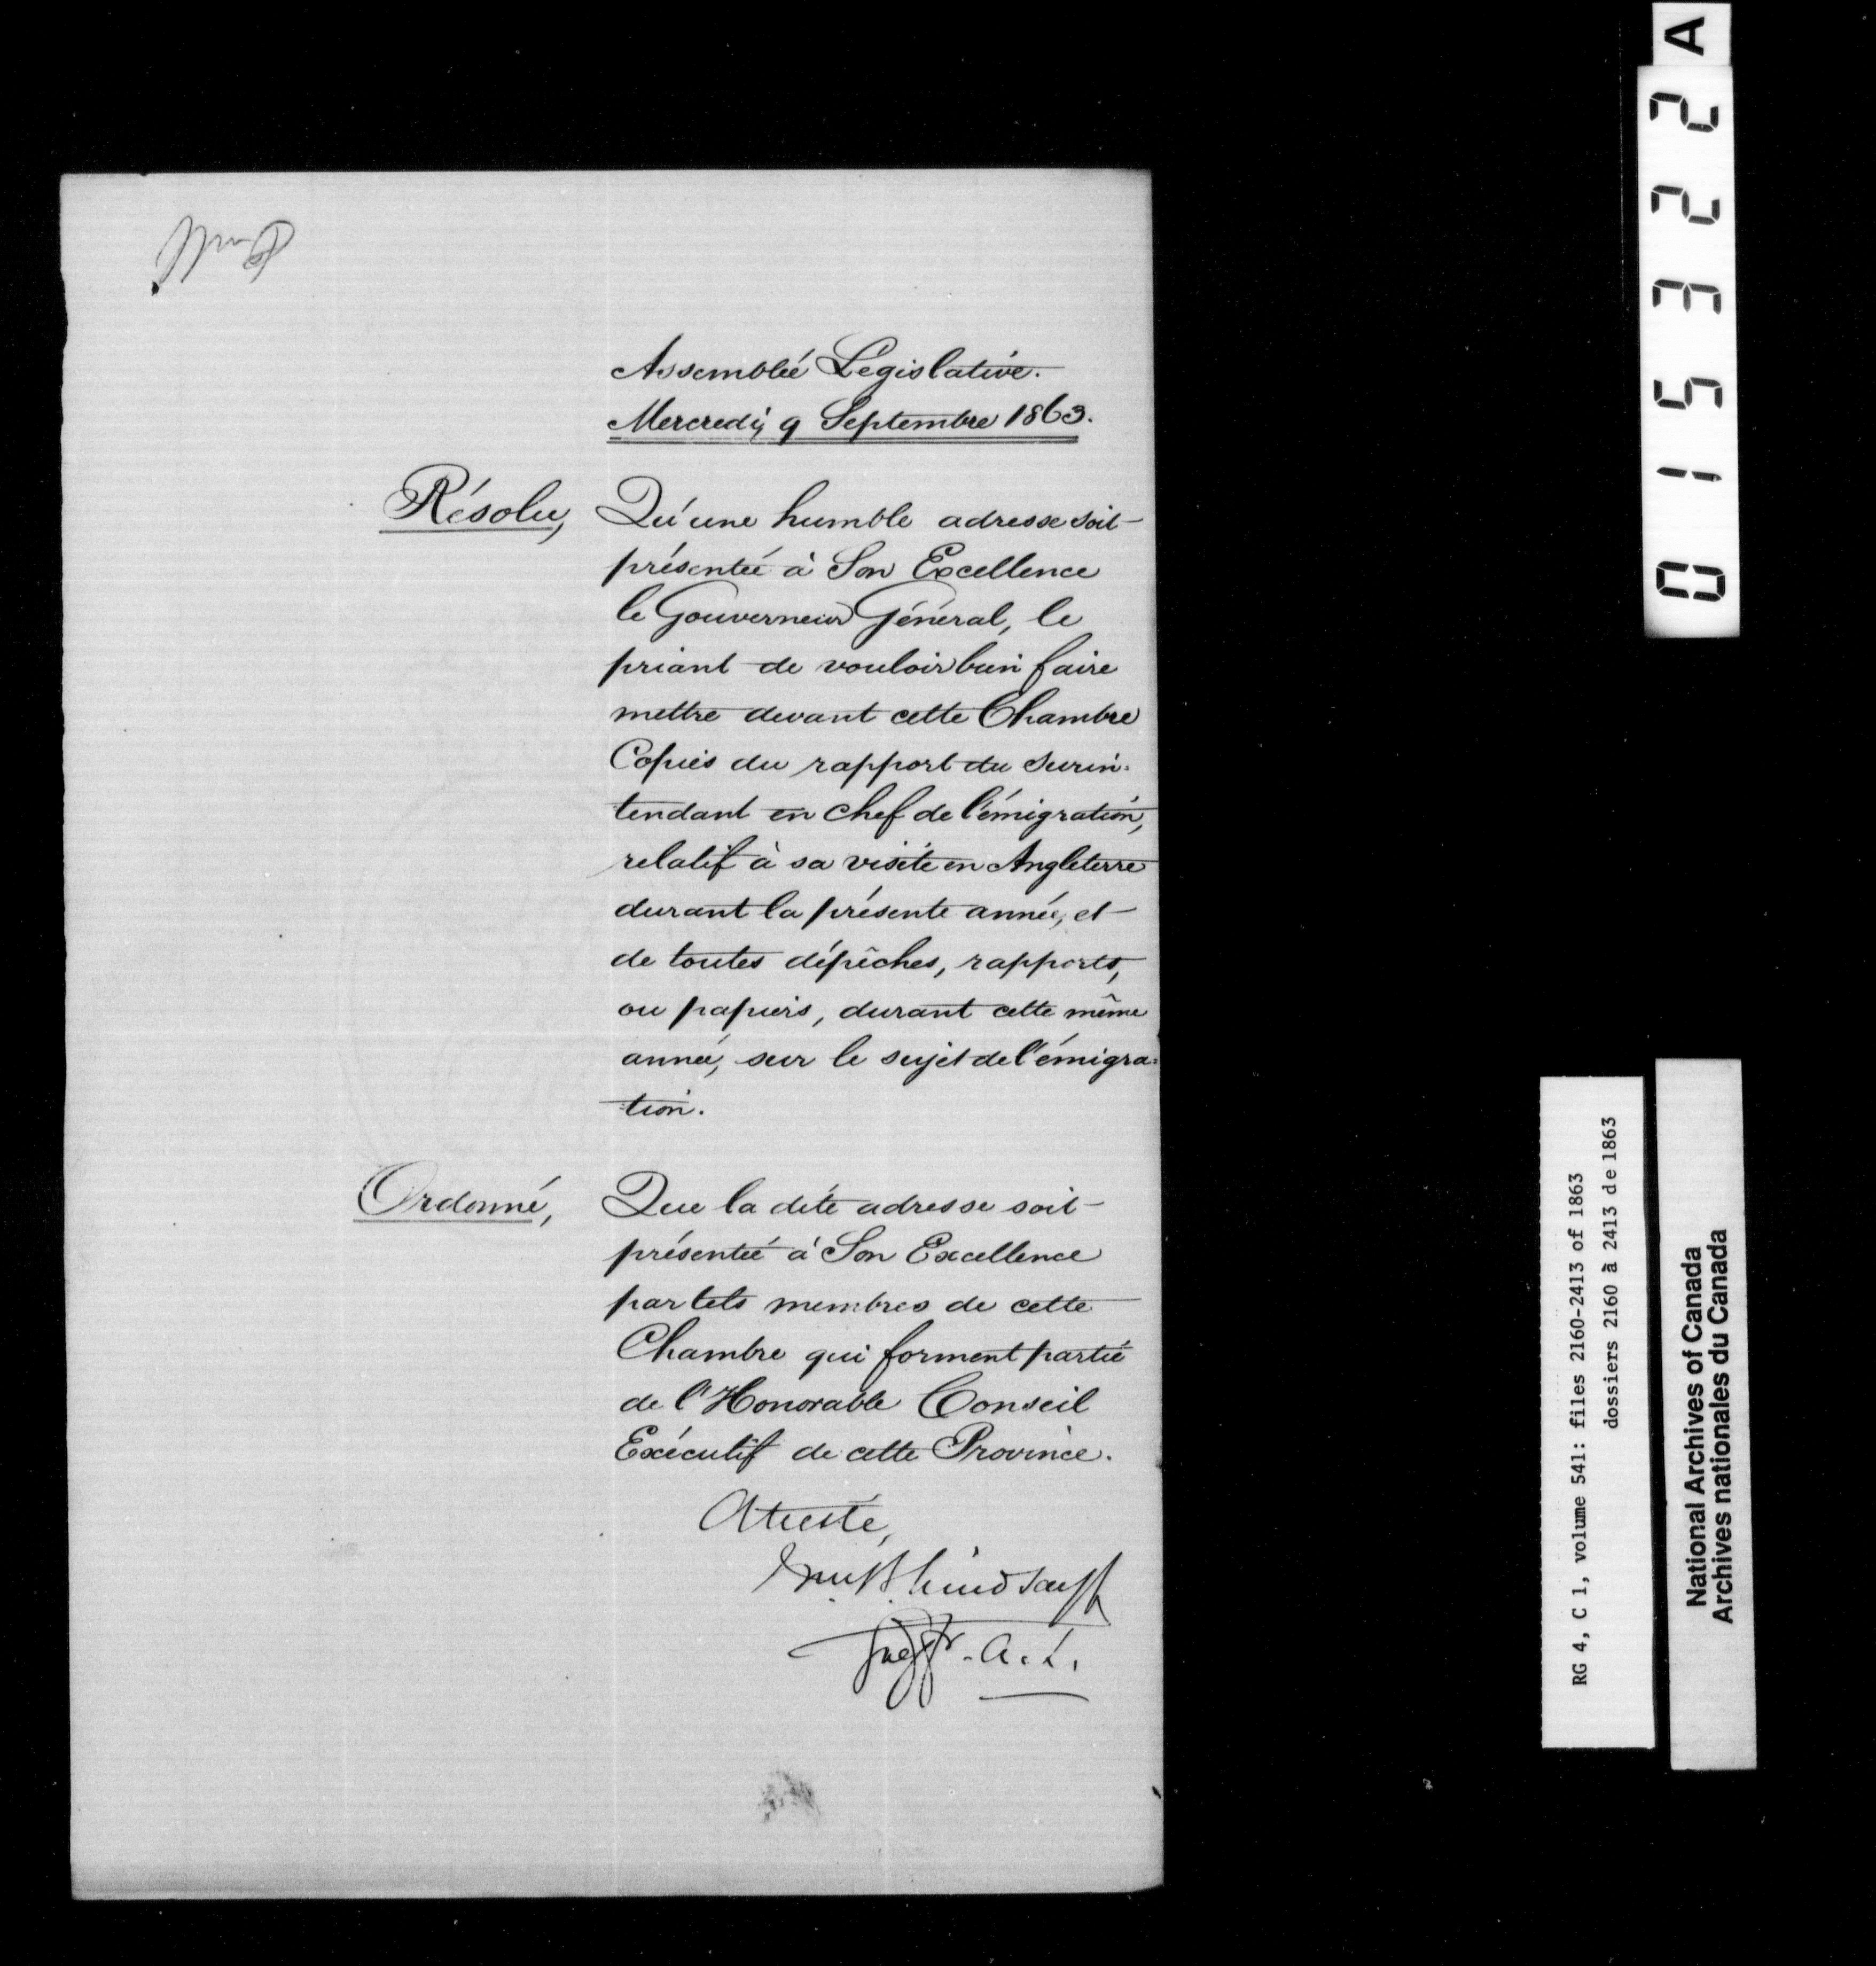 Assemblée Législative.
Mercredi, 9 Septembre 1863.
Résolu, Qu'une humble adresse soit
présentée à Son Excellence
le Gouverneur Général, le
priant de vouloir bien faire
mettre devant cette Chambre
Copies du rapport du Surin-
tendant en chef de l'émigration,
relatif à sa visite en Angleterre
durant la présente année, et
de toutes dépêches, rapports,
ou papiers, durant cette même
année, sur le sujet de l'émigra-
tion.
Ordonné, Que la dite adresse soit
présentée à Son Excellence
par tels membres de cette
Chambre qui forment partie
de l'Honorable Conseil
Exécutif de cette Province.
Atteste,
Wm B. Lindsay
Greffr. A. L.
015322 A
RG 4, C 1, volume 541: files 2160-2413 of 1863
dossiers 2160 à 2413 de 1863
National Archives of Canada
Archives nationales du Canada